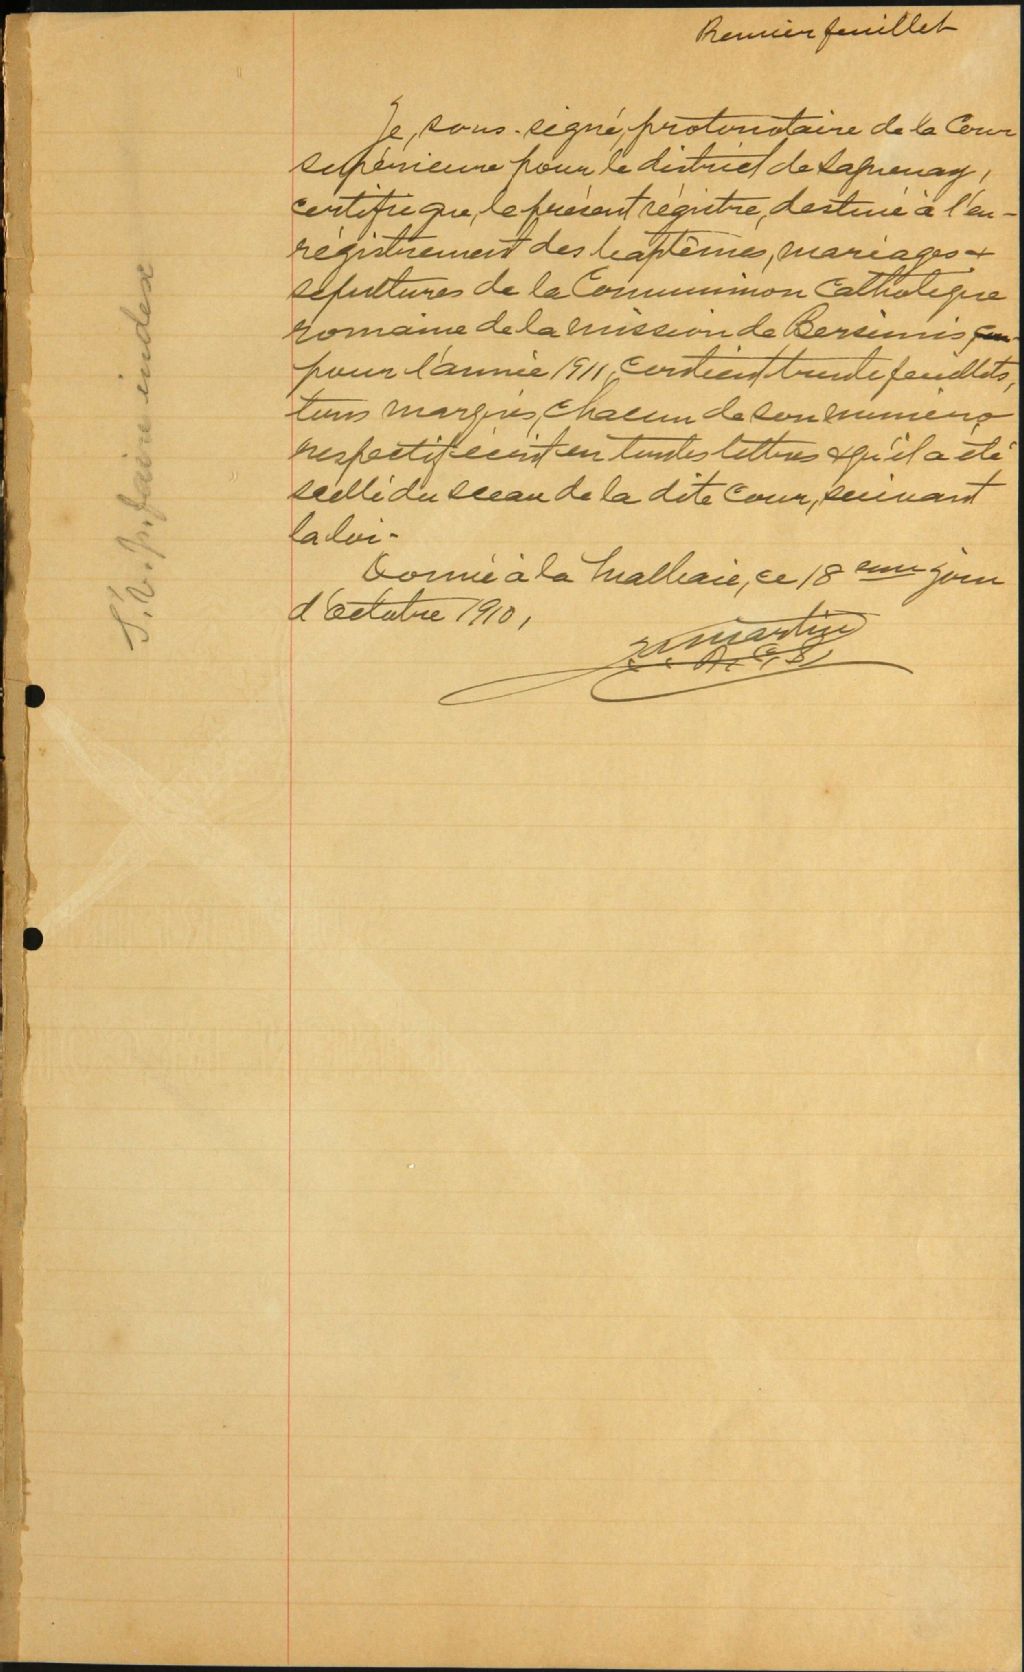 Premier feuillet
Je, sous-signé, protonotaire de la Cour
supérieure pour le district de Saguenay,
certifie que, le présent régistre, destiné à l'en-
régistrement des baptêmes, mariages &
sépultures de la Communion Catholique
romaine de la mission de Bersimis,
pour l'année 1911, contient trente feuillets,
tous margés, chacun de son numéro
respectif écrit en toutes lettres & qu'il a été
scellé du sceau de la dite Cour, suivant
la loi-
Donné à la Malbaie, ce 18 eme jour
d'Octobre 1910,
Martin
P. C. S.
S. V. p. faire index